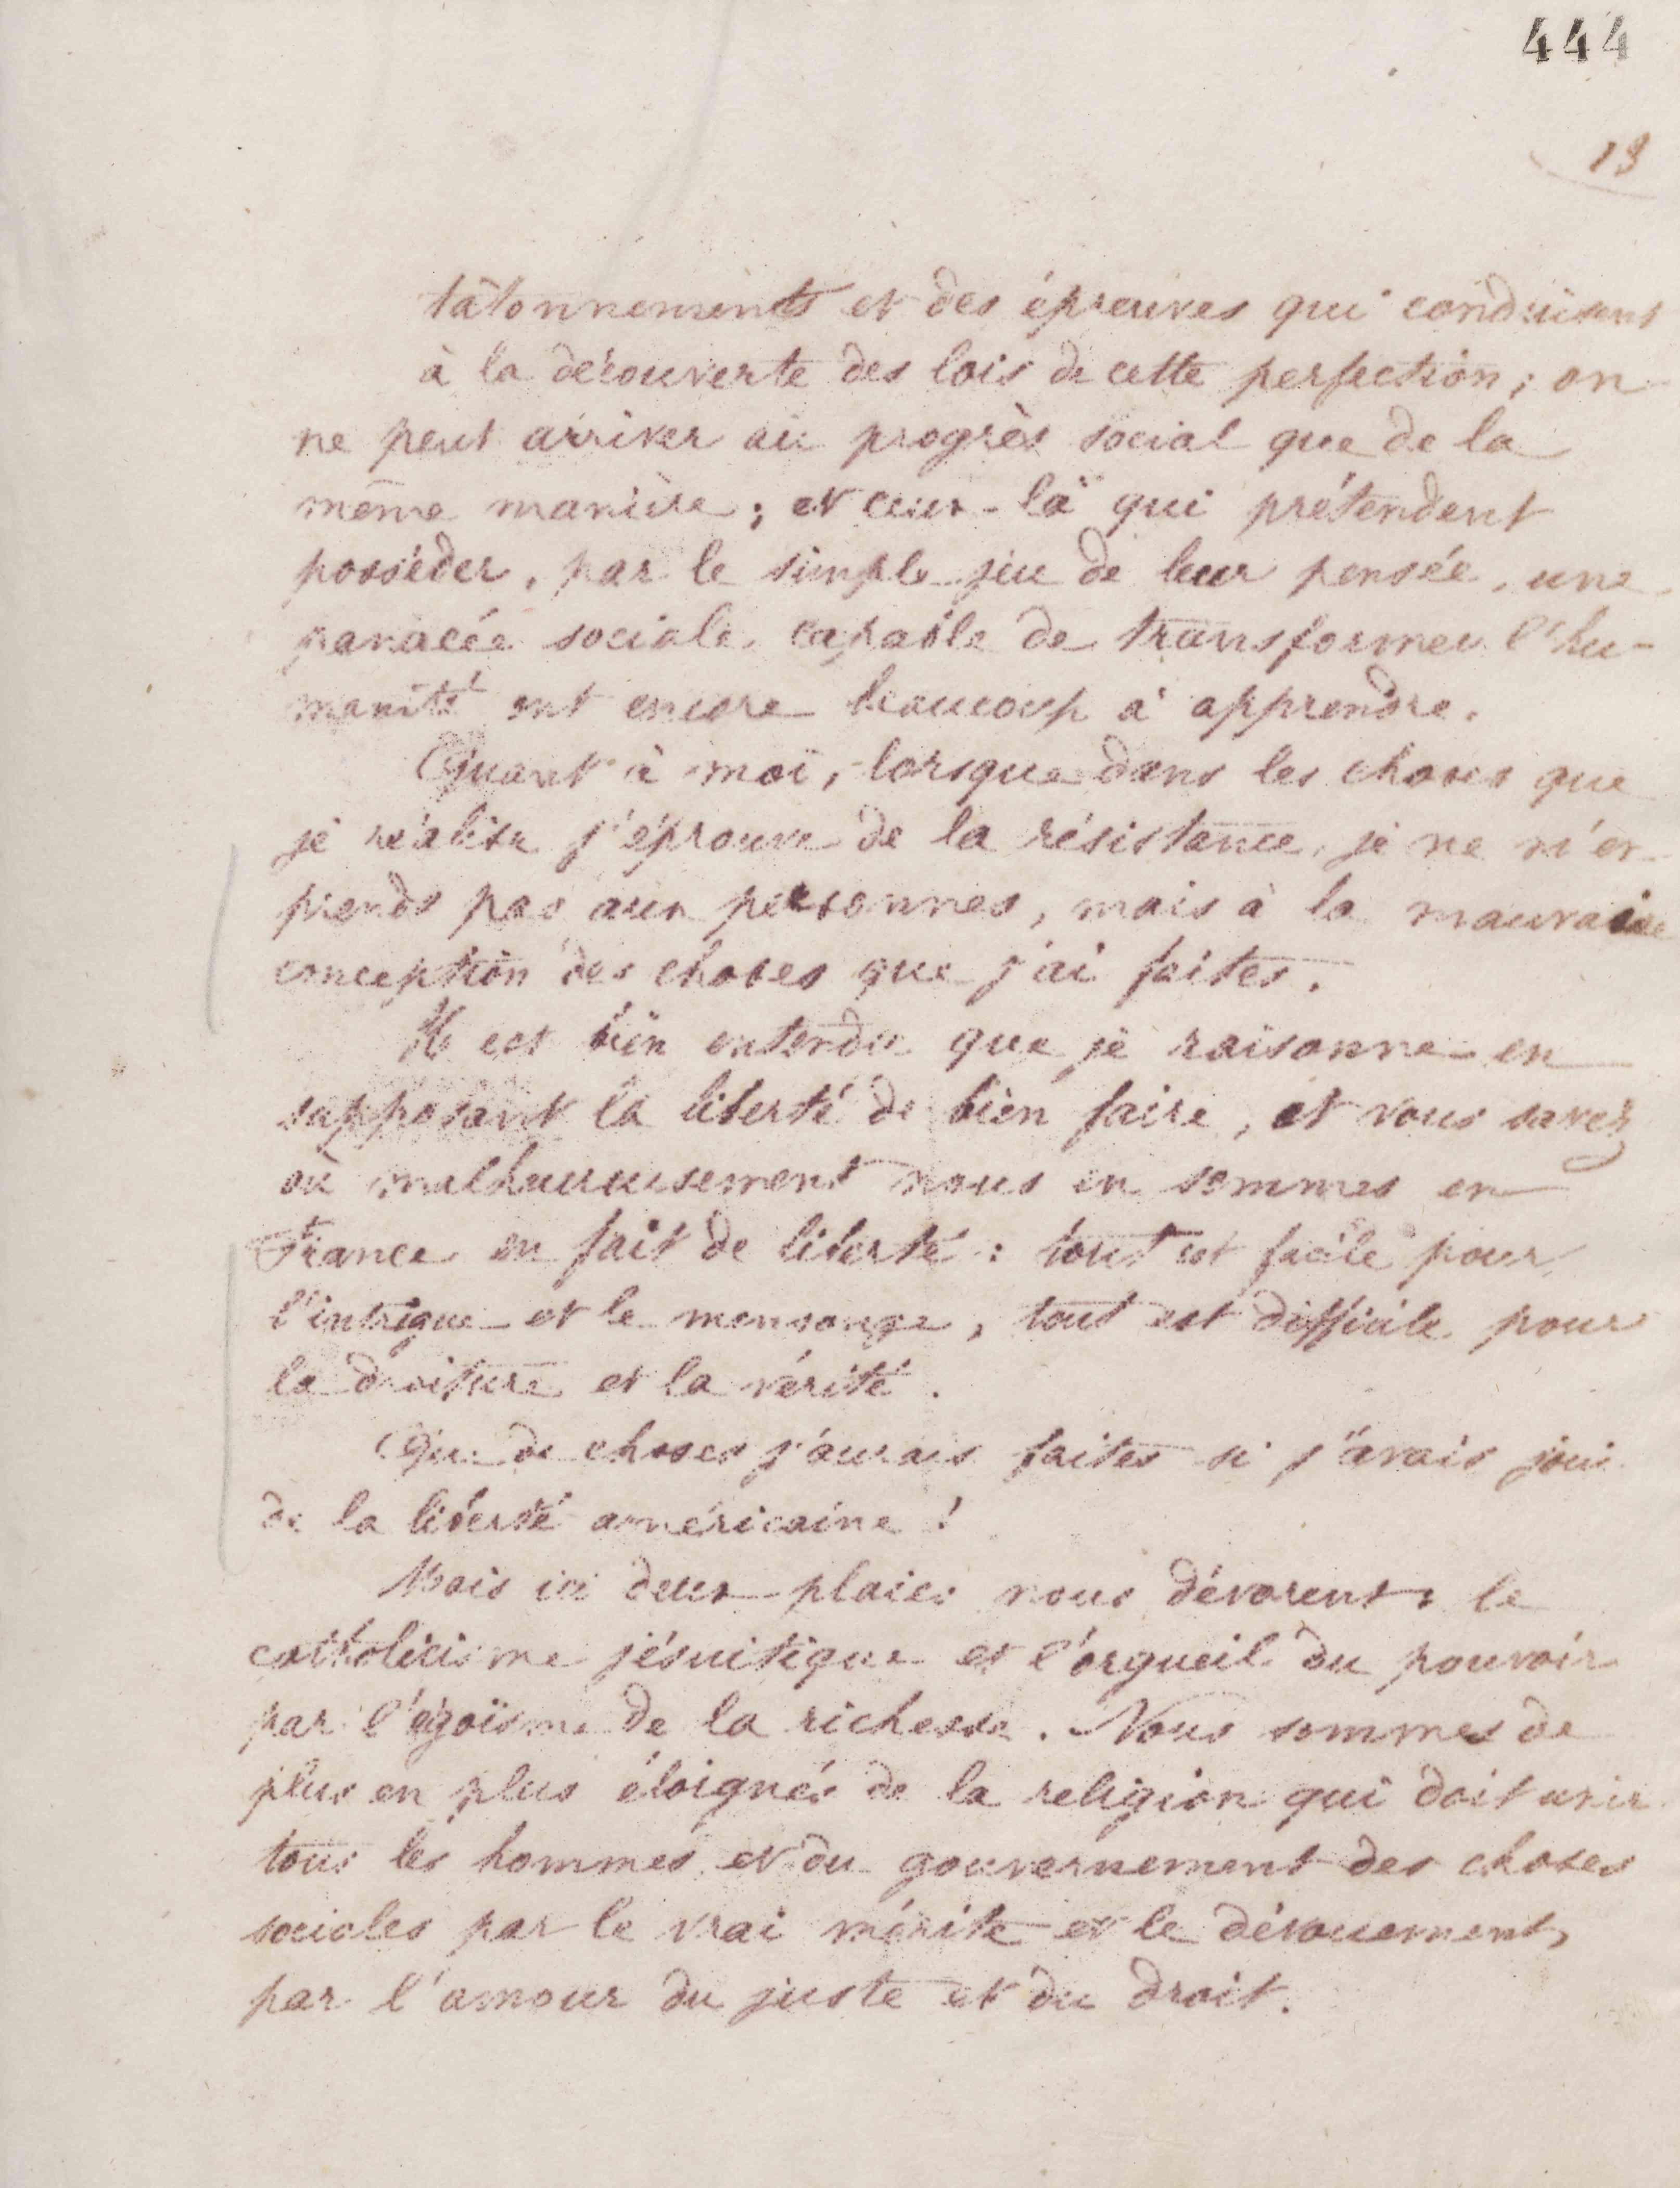 444
13
tâtonnements et des épreuves qui conduisent
à la découverte des lois de cette perfection ; on
ne peut arriver au progrès social que de la
même manière ; et ceux-là qui prétendent
posséder, par le simple jeu de leur pensée, une
panacée sociale capable de transformer l'hu-
manité ont encore beaucoup à apprendre.
Quant à moi, lorsque dans les choses que
je réalise j'éprouve de la résistance, je ne m'en
prends pas aux personnes, mais à la mauvaise
conception des choses que j'ai faites.
Il est bien entendu que je raisonne en
supposant la liberté de bien faire, et vous savez
où malheureusement nous en sommes en
France en fait de liberté : tout est facile pour
l'intrigue et le mensonge, tout est difficile pour
la droiture et la vérité.
Que de choses j'aurais faites si j'avais joui
de la liberté américaine !
Mais ici deux plaies nous dévorent : le
catholicisme jésuitique et l'orgueil du pouvoir
par l'égoïsme de la richesse. Nous sommes de
plus en plus éloignés de la religion qui doit unir
tous les hommes et du gouvernement des choses
sociales par le vrai mérite et le dévouement,
par l'amour du juste et du droit.